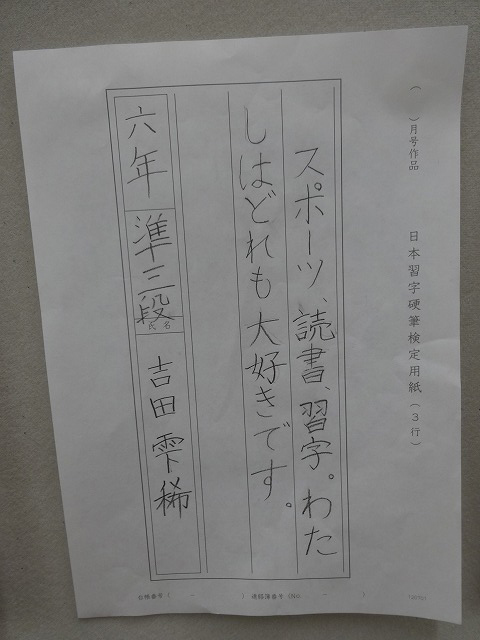 （　　）月号作品　日本習字硬筆検定用紙（３行）
スポーツ、読書、習字。わた
しはどれも大好きです。
六年 準三段 氏名 吉田 雫稀
会員番号（　－　）　連絡簿番号（No.　－　）